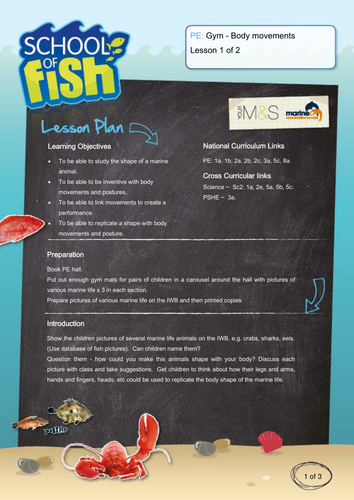 SCHOOL
OF
fish
PE: Gym - Body movements
Lesson 1 of 2
YOUR
M&S
marine
Lesson Plan
Learning Objectives
• To be able to study the shape of a marine
animal.
• To be able to be inventive with body
movements and postures.
• To be able to link movements to create a
performance.
• To be able to replicate a shape with body
movements and posture.
National Curriculum Links
PE: 1a, 1b, 2a, 2b, 2c, 3a, 5c, 8a.
Cross Curricular links
Science ~ Sc2: 1a, 2e, 5a, 5b, 5c.
PSHE ~ 3a.
Preparation
Book PE hall.
Put out enough gym mats for pairs of children in a carousel around the hall with pictures of
various marine life x 3 in each section.
Prepare pictures of various marine life on the IWB and then printed copies
Introduction
Show the children pictures of several marine life animals on the IWB. e.g. crabs, sharks, eels.
(Use database of fish pictures). Can children name them?
Question them - how could you make this animals shape with your body? Discuss each
picture with class and take suggestions. Get children to think about how their legs and arms,
hands and fingers, heads, etc could be used to replicate the body shape of the marine life.
1 of 3